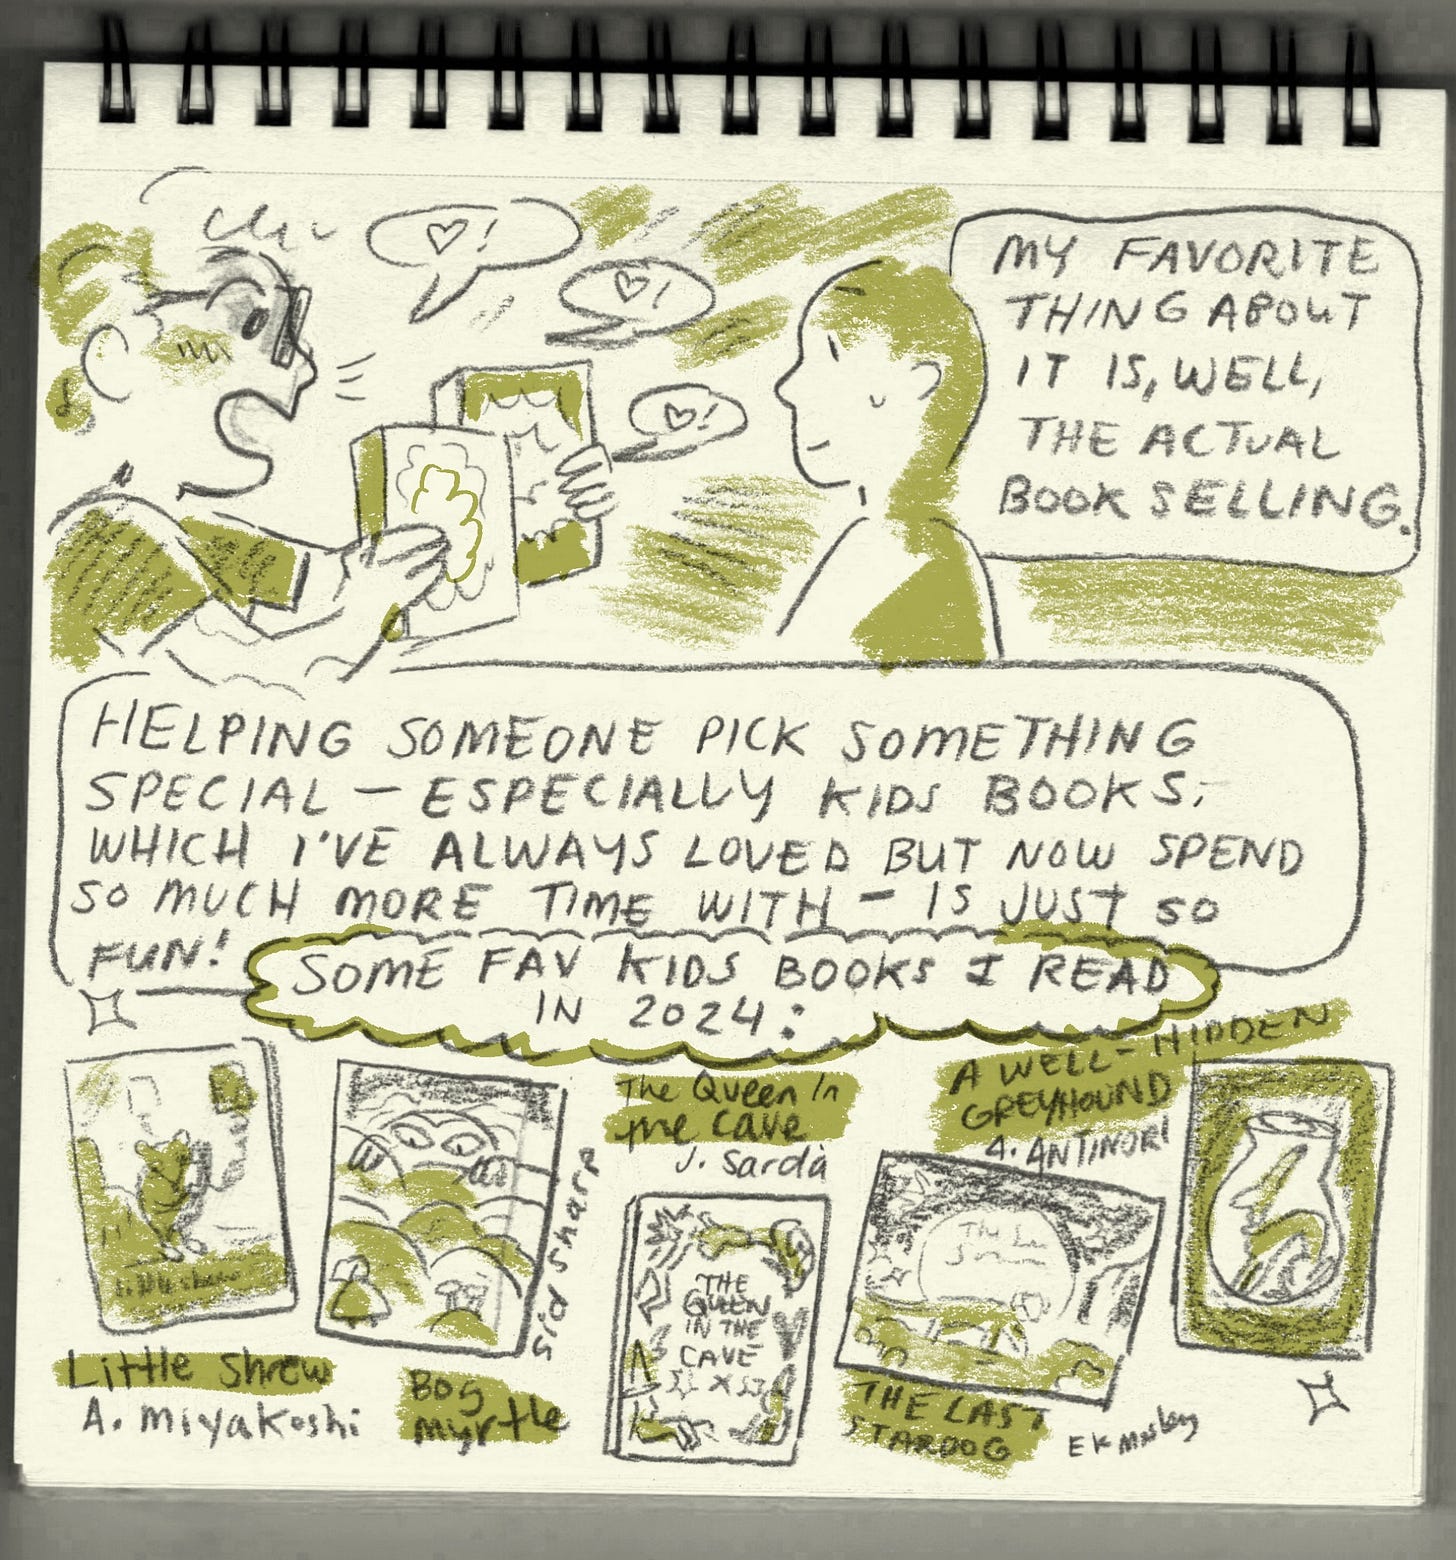 ♡!
♡!
♡!
MY FAVORITE
THING ABOUT
IT IS, WELL,
THE ACTUAL
BOOK SELLING.
HELPING SOMEONE PICK SOMETHING
SPECIAL — ESPECIALLY KIDS BOOKS,
WHICH I'VE ALWAYS LOVED BUT NOW SPEND
SO MUCH MORE TIME WITH — IS JUST SO
FUN!
SOME FAV KIDS BOOKS I READ
IN 2024:
Little Shrew
Little Shrew
A. Miyakoshi
Bog
Myrtle
Sid Sharp
The Queen In
The Cave
J. Sardà
THE
QUEEN
IN THE
CAVE
A WELL-HIDDEN
GREYHOUND
A. ANTINORI
The La
THE LAST
STARDOG
EK